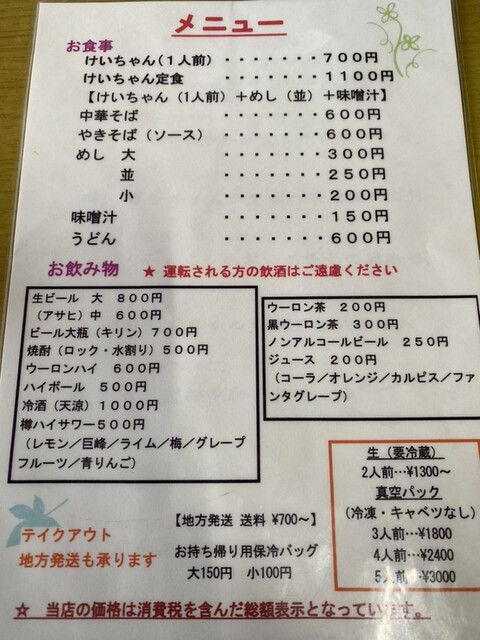 メニュー
お食事
けいちゃん(1人前)・・・・・・・700円
けいちゃん定食 ・・・・・・・1100円
【けいちゃん(1人前)+めし(並)+味噌汁】
中華そば ・・・・・・・600円
やきそば(ソース) ・・・・・・・600円
めし 大 ・・・・・・・300円
並 ・・・・・・・250円
小 ・・・・・・・200円
味噌汁 ・・・・・・・150円
うどん ・・・・・・・600円
お飲み物 ★ 運転される方の飲酒はご遠慮ください
生ビール 大 800円
(アサヒ)中 600円
ビール大瓶(キリン)700円
焼酎(ロック・水割り)500円
ウーロンハイ 600円
ハイボール 500円
冷酒(天涼)1000円
樽ハイサワー500円
(レモン/巨峰/ライム/梅/グレープ
フルーツ/青りんご)
ウーロン茶 200円
黒ウーロン茶 300円
ノンアルコールビール 250円
ジュース 200円
(コーラ/オレンジ/カルピス/ファ
ンタグレープ)
テイクアウト
地方発送も承ります
【地方発送 送料 ¥700~】
お持ち帰り用保冷バッグ
大150円 小100円
生(要冷蔵)
2人前…¥1300~
真空パック
(冷凍・キャベツなし)
3人前…¥1800
4人前…¥2400
5人前…¥3000
★ 当店の価格は消費税を含んだ総額表示となっています。